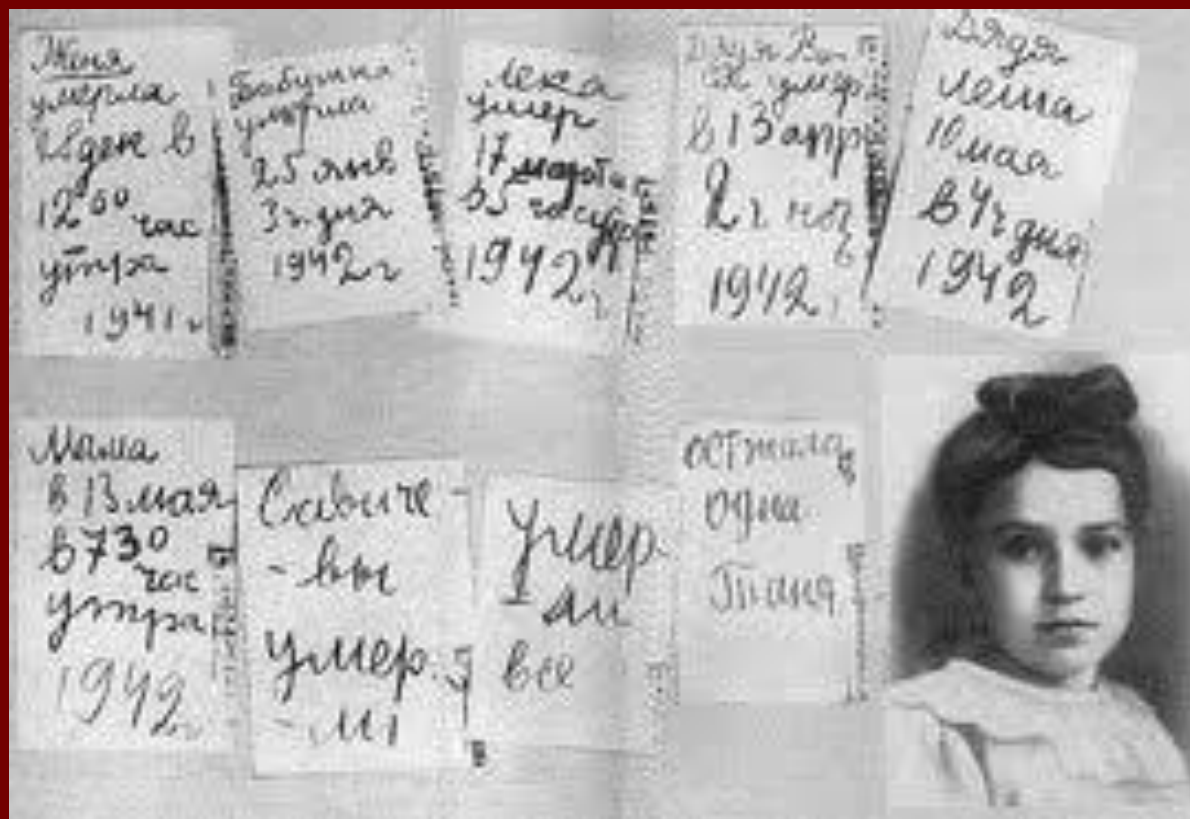 Женя
умерла
28 ден в
12⁰⁰ час
утра
1941 г
Бабушка
умерла
25 янв
3 ч. дня
1942 г
Лека
умер
17 марта
в 5 час утр
1942 г
Дядя Ва
ся умер
в 13 апр
2 ч ноч
1942 г
Дядя
Леша
10 мая
в 4 ч дня
1942
Мама
в 13 мая
в 7³⁰
час
утра
1942 г
Савиче
- вы
умер.
- ли
Умер
- ли
все
осталась
одна
Таня